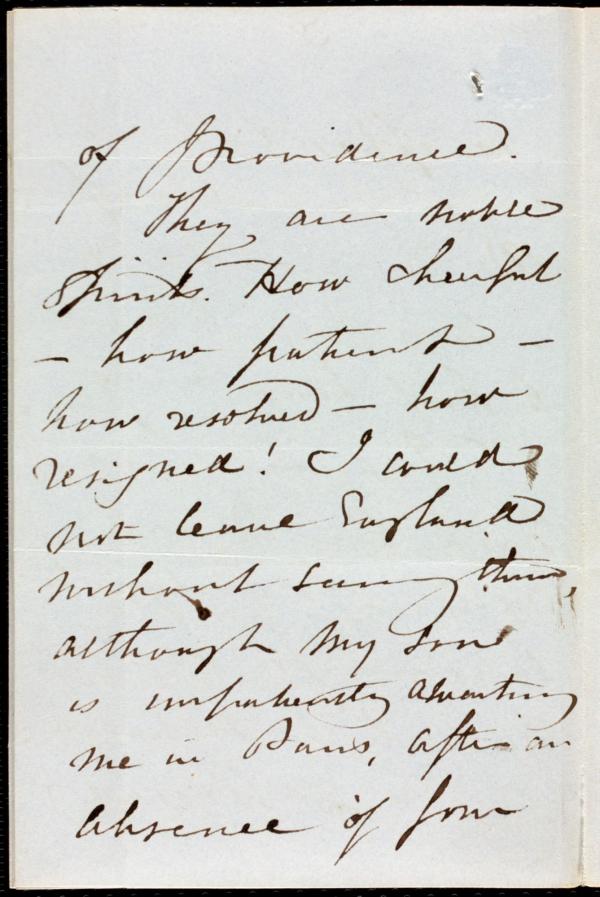 of Providence.
They are noble
spirits. How cheerful
– how patient –
how resolved – how
resigned! I could
not leave England
without seeing them,
although my son
is impatiently awaiting
me in Paris, after an
absence of four